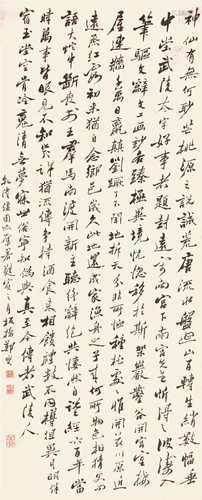 神仙有無何眇芒桃源之說誠荒唐流水盤迴山百轉生綃數幅垂
中堂武陵太守好事者題封遠寄南宮下南宮先生忻得之波濤入
筆驅文辭文工畫妙各臻極異境恍惚移於斯架巖鑿谷開宮室接
屋連牆千萬日嬴顛劉蹶了不聞地坼天分非所恤種桃處處惟開花川原近
遠蒸紅霞初來猶自念鄉邑歲久此地還成家漁舟之子來何所物色相猜更問
語大蛇中斷喪前王群馬南渡開新主聽終辭絕共悽然自說經今六百年當
時萬事皆眼見不知幾許猶流傳爭持酒食來相饋禮數不同樽俎異月明伴
宿玉堂空骨冷魂清無夢寐世俗寧知偽與真至今傳者武陵人
乾隆 之月板橋鄭燮